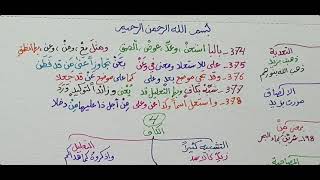 بسم الله الرحمن الرحيم
374- بالبا استعن وعد عوض ألصق ومثل مع ومن وعن بها انطق
375- على للاستعلا ومعنى في وعن بعن تجاوزا عنى من قد فطن
376- وقد تجي موضع بعد وعلى كما على موضع عن قد جعلا
377- شبه بكاف وبها التعليل قد يعنى وزائدا لتوكيد ورد
378- واستعمل اسما وكذا عن وعلى من أجل ذا عليهما من دخلا
التعدية
ذهبت بزيد
ذهب الله بنورهم
الإلصاق
مررت بزيد
بمعنى من
الكاف
4
التشبيه كثيرا
زيد كالأسد
التعليل
واذكروه كما هداكم
المصاحبة